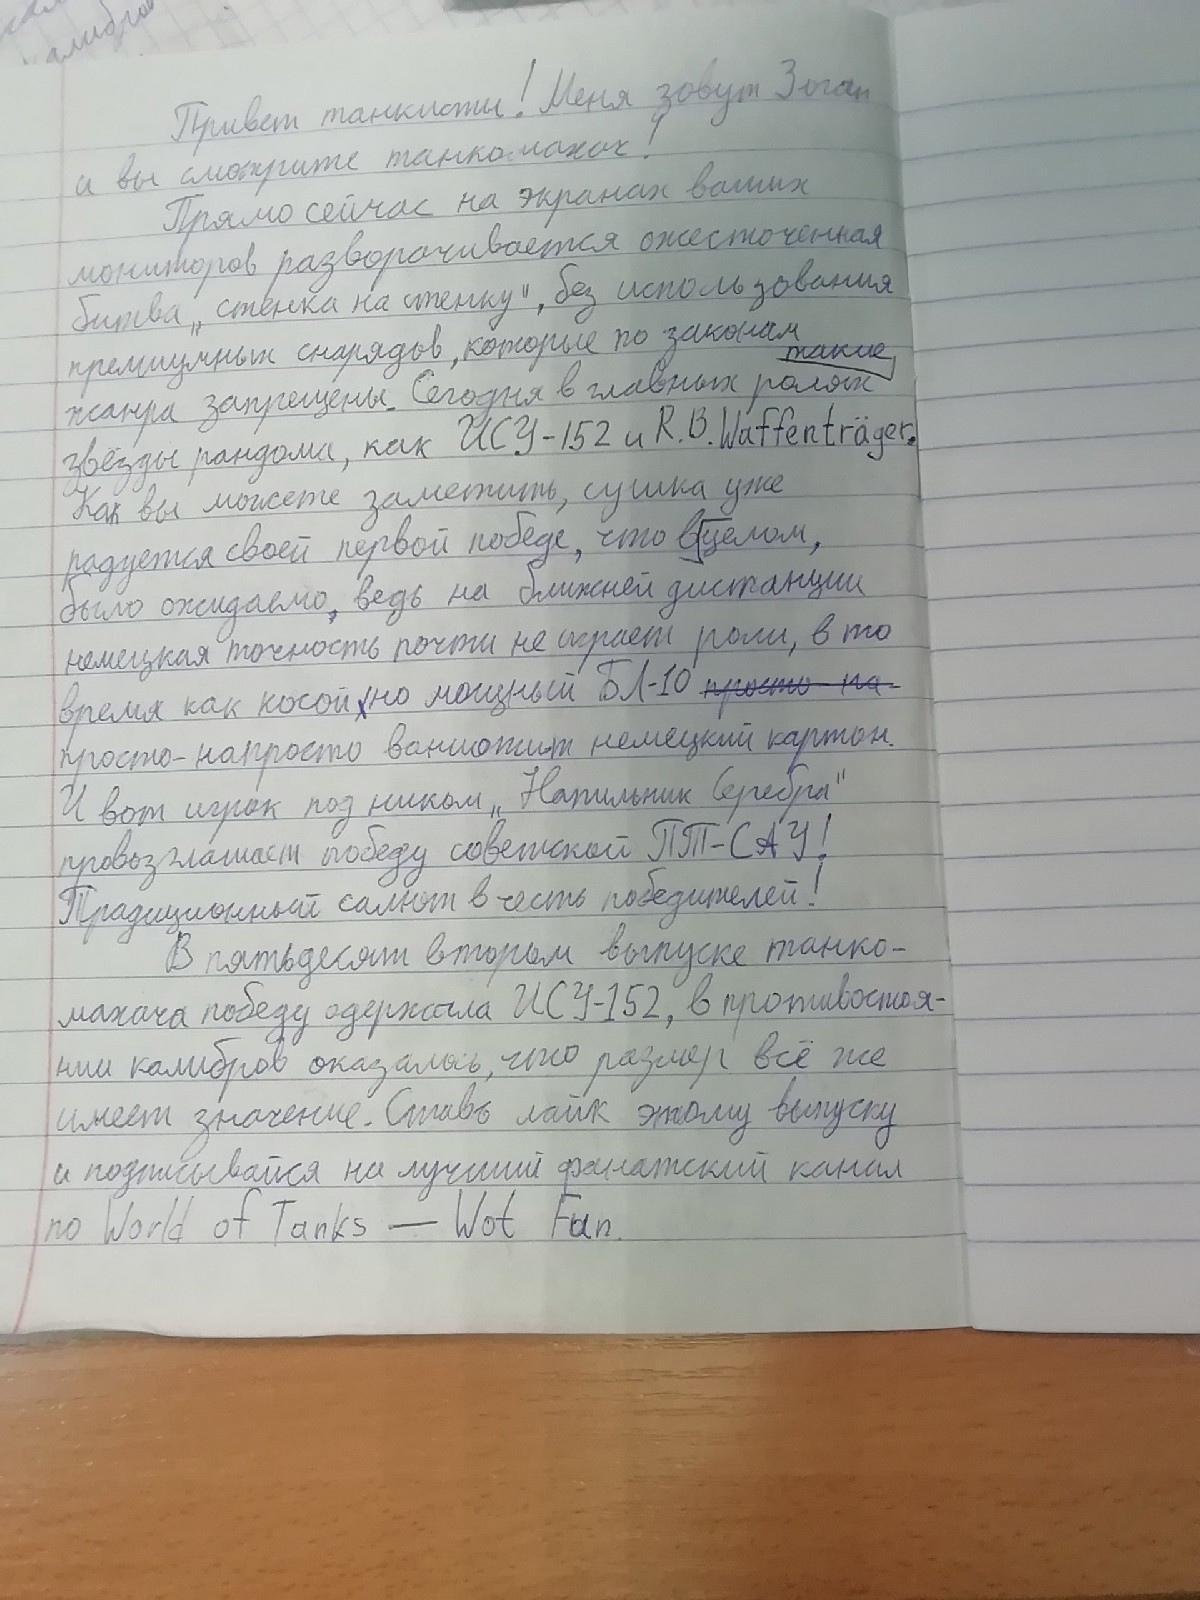 калибров
Привет танкисты! Меня зовут Зоган
и вы смотрите танкомахач!
Прямо сейчас на экранах ваших
мониторов разворачивается ожесточенная
битва „стенка на стенку", без использования
премиумных снарядов, которые по законам
такие
жанра запрещены. Сегодня в главных ролях
звёзды рандома, как ИСУ-152 и R.B. Waffenträger.
Как вы можете заметить, сушка уже
радуется своей первой победе, что в целом,
было ожидаемо, ведь на ближней дистанции
немецкая точность почти не играет роли, в то
время как косой, но мощный БЛ-10 просто на-
просто-напросто ваншотит немецкий картон.
И вот игрок под ником „Напильник Серебра"
провозглашает победу советской ПТ-САУ!
Традиционный салют в честь победителей!
В пятьдесят втором выпуске танко-
махача победу одержала ИСУ-152, в противостоя-
нии калибров оказалось, что размер всё же
имеет значение. Ставь лайк этому выпуску
и подписывайся на лучший фанатский канал
по World of Tanks — Wot Fan.